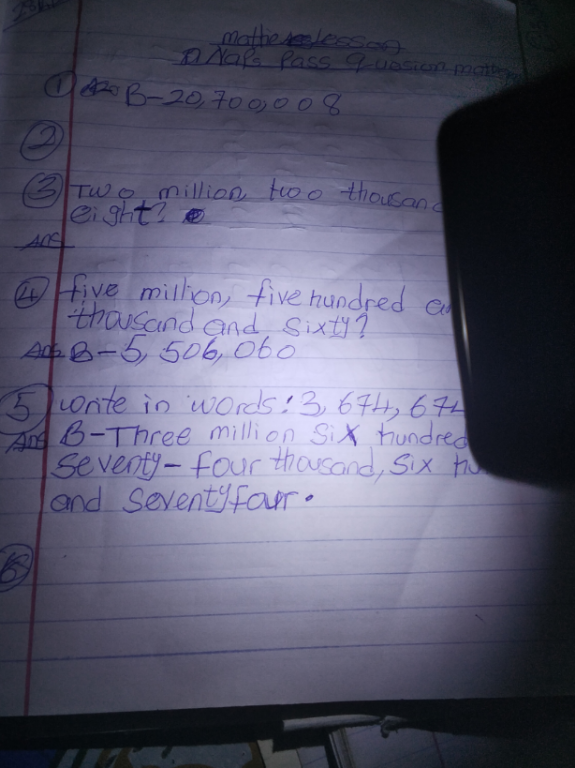 lesson
NAPS Pass Quosion
① B-20,700,008
②
③ Two million two thousand
eight?
Ans
④ five million, five hundred
thousand and sixty?
Ans B-5, 506, 060
5 write in words: 3, 674, 674
Ans B-Three million Six hundred
Seventy-four thousand, Six hu
and Seventyfour.
6